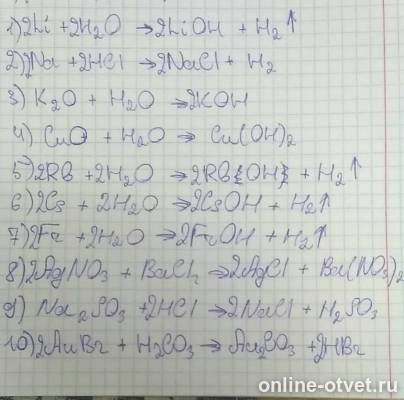 1) 2Li + 2H₂O → 2LiOH + H₂↑
2) 2Na + 2HCl → 2NaCl + H₂
3) K₂O + H₂O → 2KOH
4) CuO + H₂O → Cu(OH)₂
5) 2RB + 2H₂O → 2RB{OH} + H₂↑
6) 2Cs + 2H₂O → 2CsOH + H₂↑
7) 2Fr + 2H₂O → 2FrOH + H₂↑
8) 2AgNO₃ + BaCl₂ → 2AgCl + Ba(NO₃)₂
9) Na₂SO₃ + 2HCl → 2NaCl + H₂SO₃
10) 2AuBr + H₂CO₃ → Au₂CO₃ + 2HBr
online-otvet.ru